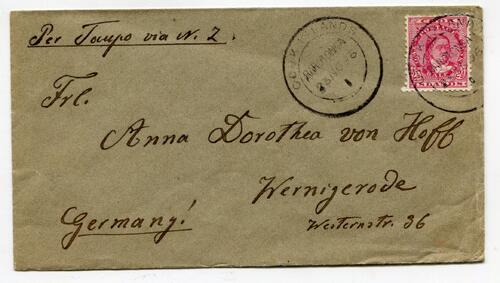 Per Taupo via N. Z.
COOK ISLANDS
RAROTONGA
Frl.
Anna Dorothea von Hoff
Wernigerode
Germany!
Westernstr. 36